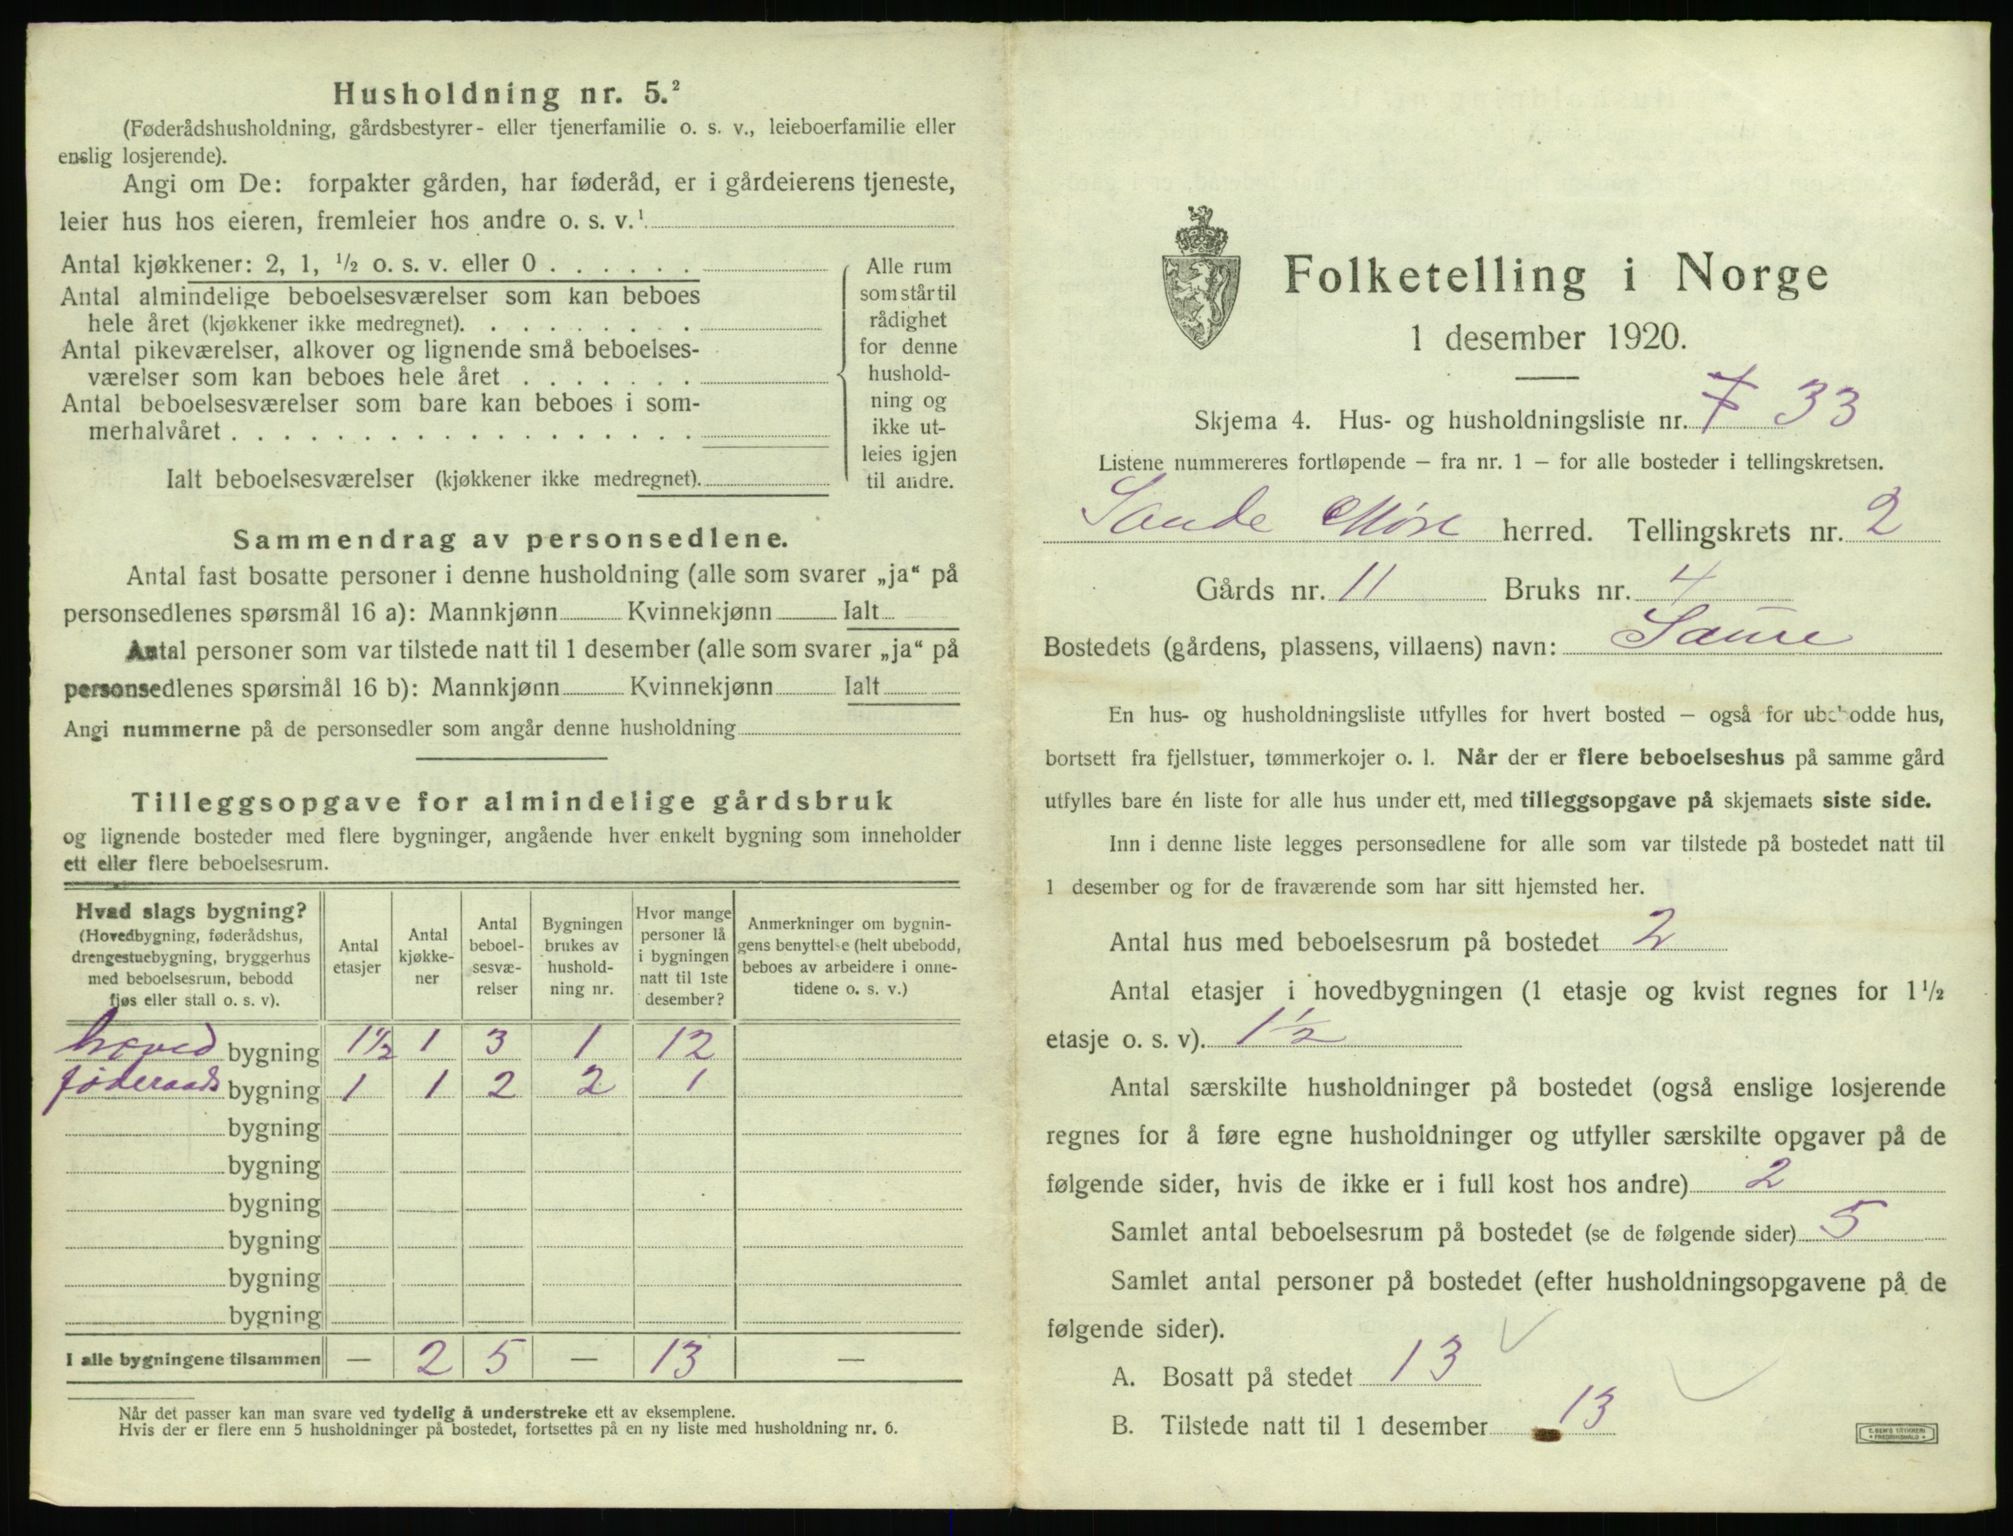 Husholdning nr. 5.²
(Føderådshusholdning, gårdsbestyrer- eller tjenerfamilie o. s. v., leieboerfamilie eller
enslig losjerende).
Angi om De: forpakter gården, har føderåd, er i gårdeierens tjeneste,
leier hus hos eieren, fremleier hos andre o. s. v.¹
Antal kjøkkener: 2, 1, ½ o. s. v. eller 0 . . . . . .
Antal almindelige beboelsesværelser som kan beboes
hele året (kjøkkener ikke medregnet). . . . . . . . .
Antal pikeværelser, alkover og lignende små beboelses-
værelser som kan beboes hele året . . . . . . .
Antal beboelsesværelser som bare kan beboes i som-
merhalvåret . . . . . . . . . . . . . . . . . .
Ialt beboelsesværelser (kjøkkener ikke medregnet).
Alle rum
som står til
rådighet
for denne
hushold-
ning og
ikke ut-
leies igjen
til andre.
Sammendrag av personsedlene.
Antal fast bosatte personer i denne husholdning (alle som svarer „ja“ på
personsedlenes spørsmål 16 a): Mannkjønn Kvinnekjønn Ialt
Antal personer som var tilstede natt til 1 desember (alle som svarer „ja“ på
personsedlenes spørsmål 16 b): Mannkjønn Kvinnekjønn Ialt
Angi nummerne på de personsedler som angår denne husholdning
Tilleggsopgave for almindelige gårdsbruk
og lignende bosteder med flere bygninger, angående hver enkelt bygning som inneholder
ett eller flere beboelsesrum.
Hvad slags bygning?
(Hovedbygning, føderådshus,
drengestuebygning, bryggerhus
med beboelsesrum, bebodd
fjøs eller stall o. s. v).
Antal
etasjer
Antal
kjøkke-
ner
Antal
beboel-
sesvæ-
relser
Bygningen
brukes av
hushold-
ning nr.
Hvor mange
personer lå
i bygningen
natt til 1ste
desember?
Anmerkninger om bygnin-
gens benyttelse (helt ubebodd,
beboes av arbeidere i onne-
tidene o. s. v.)
hoved bygning 1½ 1 3 1 12
føderaads bygning 1 1 2 2 1
bygning
bygning
bygning
bygning
bygning
bygning
I alle bygningene tilsammen — 2 5 — 13 —
Når det passer kan man svare ved tydelig å understreke ett av eksemplene.
Hvis der er flere enn 5 husholdninger på bostedet, fortsettes på en ny liste med husholdning nr. 6.
Folketelling i Norge
1 desember 1920.
Skjema 4. Hus- og husholdningsliste nr. 7 33
Listene nummereres fortløpende — fra nr. 1 — for alle bosteder i tellingskretsen.
Sande Møre herred. Tellingskrets nr. 2
Gårds nr. 11 Bruks nr. 4
Bostedets (gårdens, plassens, villaens) navn: Saure
En hus- og husholdningsliste utfylles for hvert bosted — også for ubebodde hus,
bortsett fra fjellstuer, tømmerkojer o. l. Når der er flere beboelseshus på samme gård
utfylles bare én liste for alle hus under ett, med tilleggsopgave på skjemaets siste side.
Inn i denne liste legges personsedlene for alle som var tilstede på bostedet natt til
1 desember og for de fraværende som har sitt hjemsted her.
Antal hus med beboelsesrum på bostedet 2
Antal etasjer i hovedbygningen (1 etasje og kvist regnes for 1½
etasje o. s. v). 1½
Antal særskilte husholdninger på bostedet (også enslige losjerende
regnes for å føre egne husholdninger og utfyller særskilte opgaver på de
følgende sider, hvis de ikke er i full kost hos andre) 2
Samlet antal beboelsesrum på bostedet (se de følgende sider) 5
Samlet antal personer på bostedet (efter husholdningsopgavene på de
følgende sider).
A. Bosatt på stedet 13
B. Tilstede natt til 1 desember 13